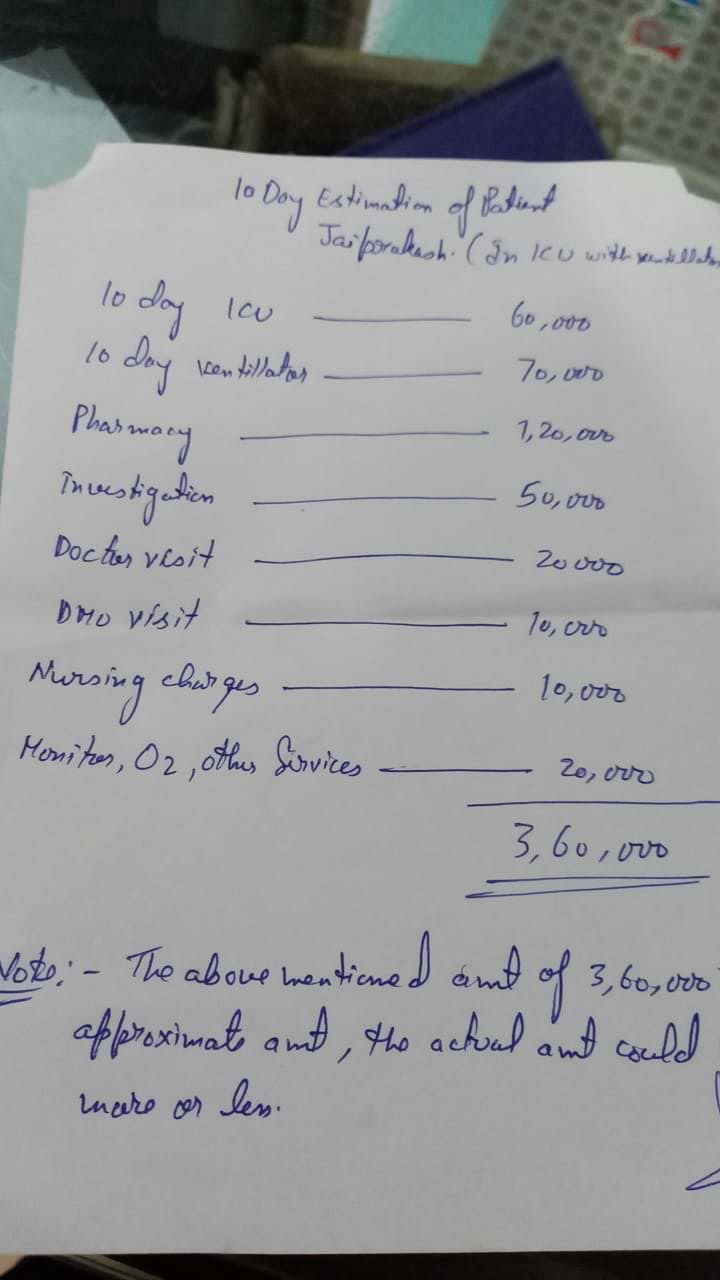 10 Day Estimation of Patient
Jaiprakash. (In ICU with ventillator
10 day ICU — 60,000
10 day ventillator — 70,000
Pharmacy — 1,20,000
Investigation — 50,000
Doctor visit — 20000
DMO visit — 10,000
Nursing charges — 10,000
Monitor, O2, other Services — 20,000
3,60,000
Note:- The above mentioned amt of 3,60,000
approximate amt, the actual amt could
more or less.